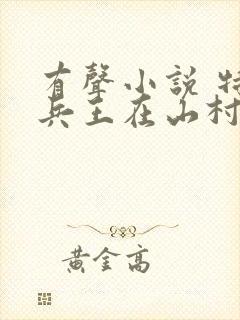 有聲小說 特
兵王在山村
黃金高